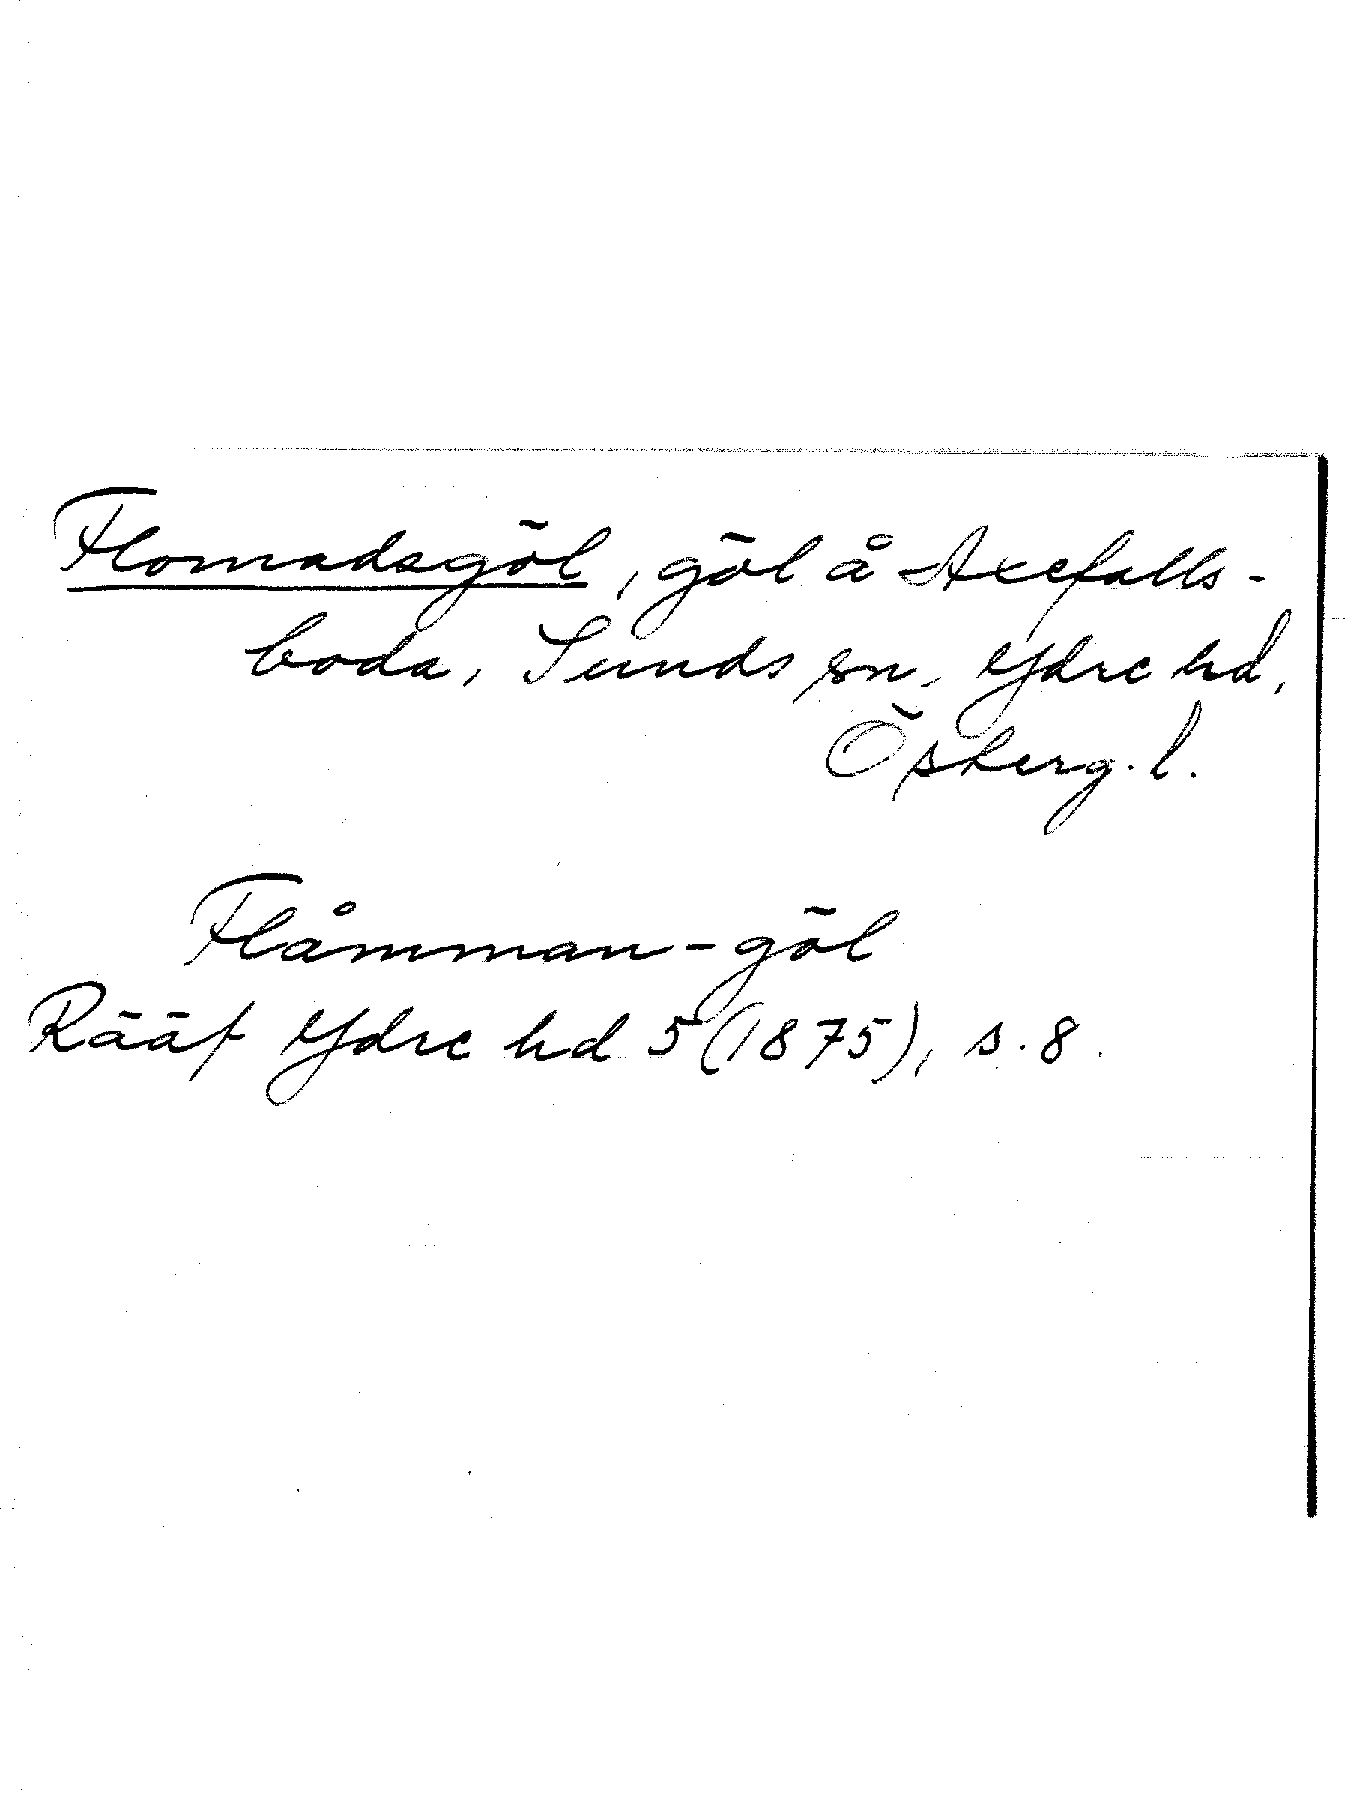 Flomadsgöl, göl å Axefalls-
boda, Sunds sn, Ydre hd,
Österg. l.
Flåmman-göl
Rääf Ydre hd 5 (1875), s. 8.